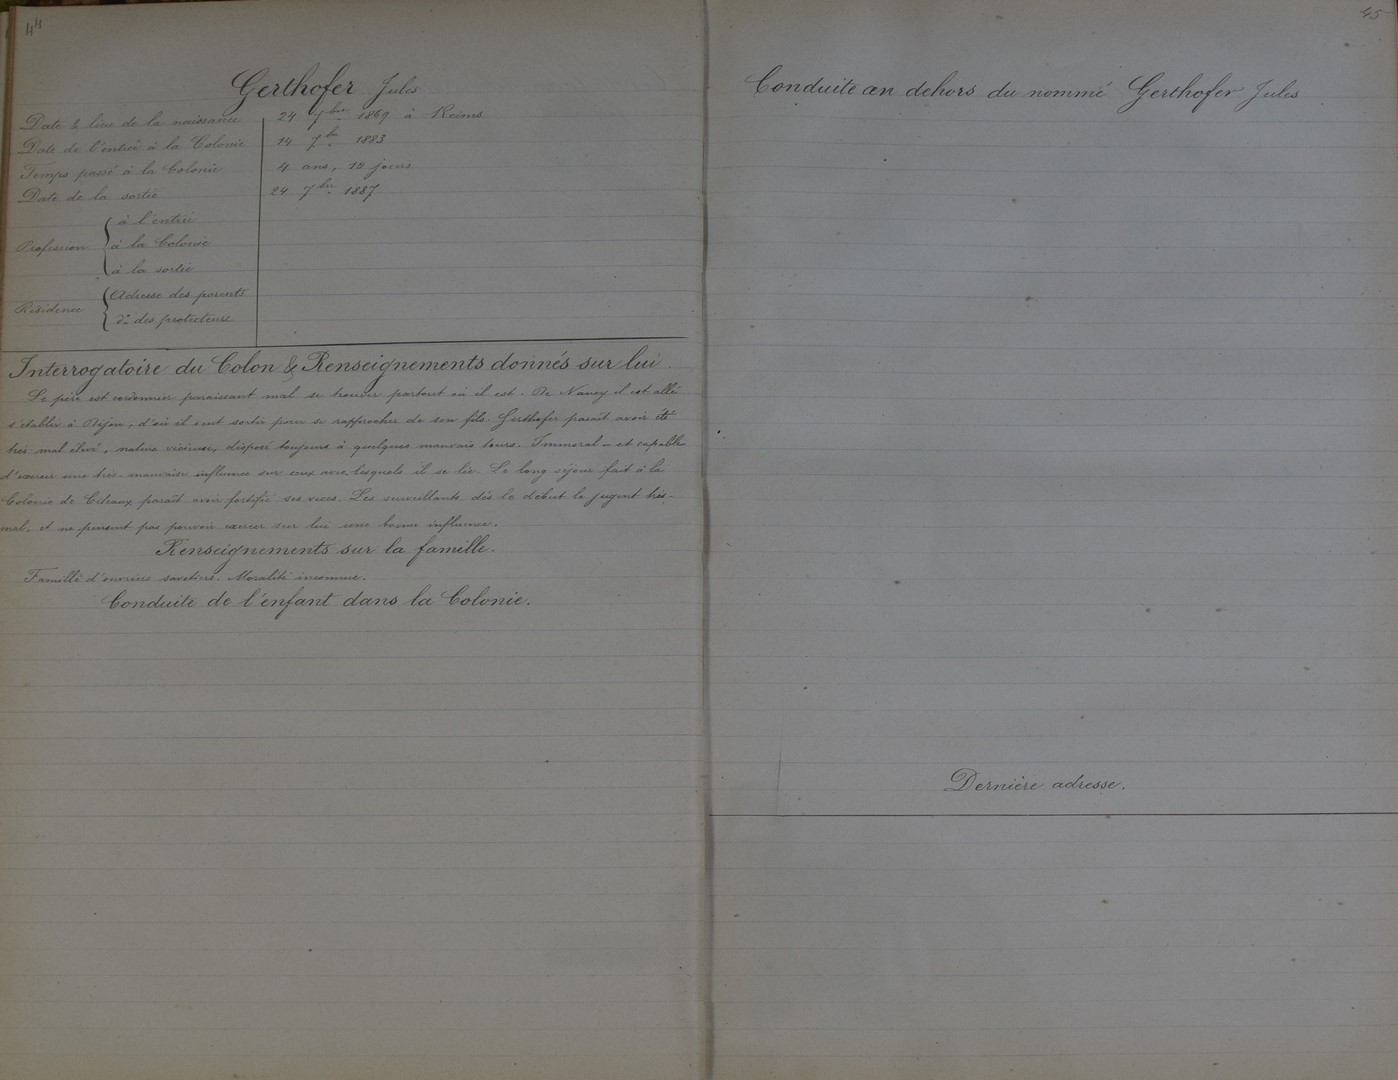 44
Gerthofer Jules
Date & lieu de la naissance 24 7bre 1869 à Reims
Date de l'entrée à la Colonie 14 7bre 1883
Temps passé à la Colonie 4 ans, 10 jours
Date de la sortie 24 7bre 1887
Profession
à l'entrée
à la Colonie
à la sortie
Résidence
Adresse des parents
do des protecteurs
Interrogatoire du Colon & Renseignements donnés sur lui.
Le père est cordonnier paraissant mal se trouver partout où il est. De Nancy il est allé
s'établir à Dijon, d'où il veut sortir pour se rapprocher de son fils. Gerthofer paraît avoir été
très mal élevé, nature vicieuse, disposé toujours à quelques mauvais tours. Immoral - et capable
d'exercer une très-mauvaise influence sur ceux avec lesquels il se lie. Le long séjour fait à la
Colonie de Citeaux paraît avoir fortifié ses vices. Les surveillants dès le début le jugent très-
mal, et ne pensent pas pouvoir exercer sur lui une bonne influence.
Renseignements sur la famille.
Famille d'ouvriers savetiers. Moralité inconnue.
Conduite de l'enfant dans la Colonie.
45
Conduite en dehors du nommé Gerthofer Jules
Dernière adresse.